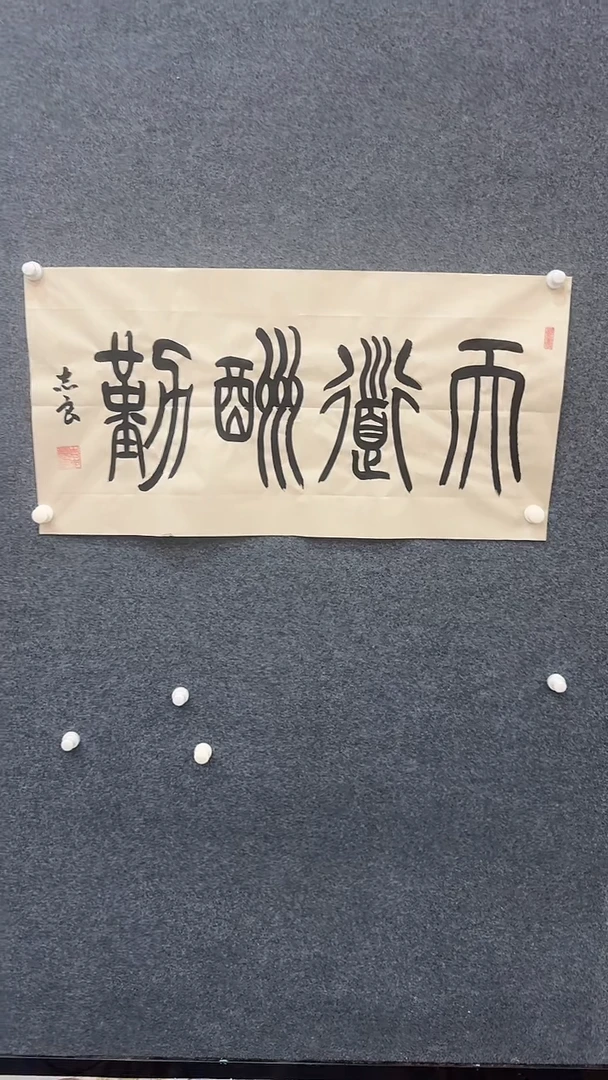 天道酬勤
志良